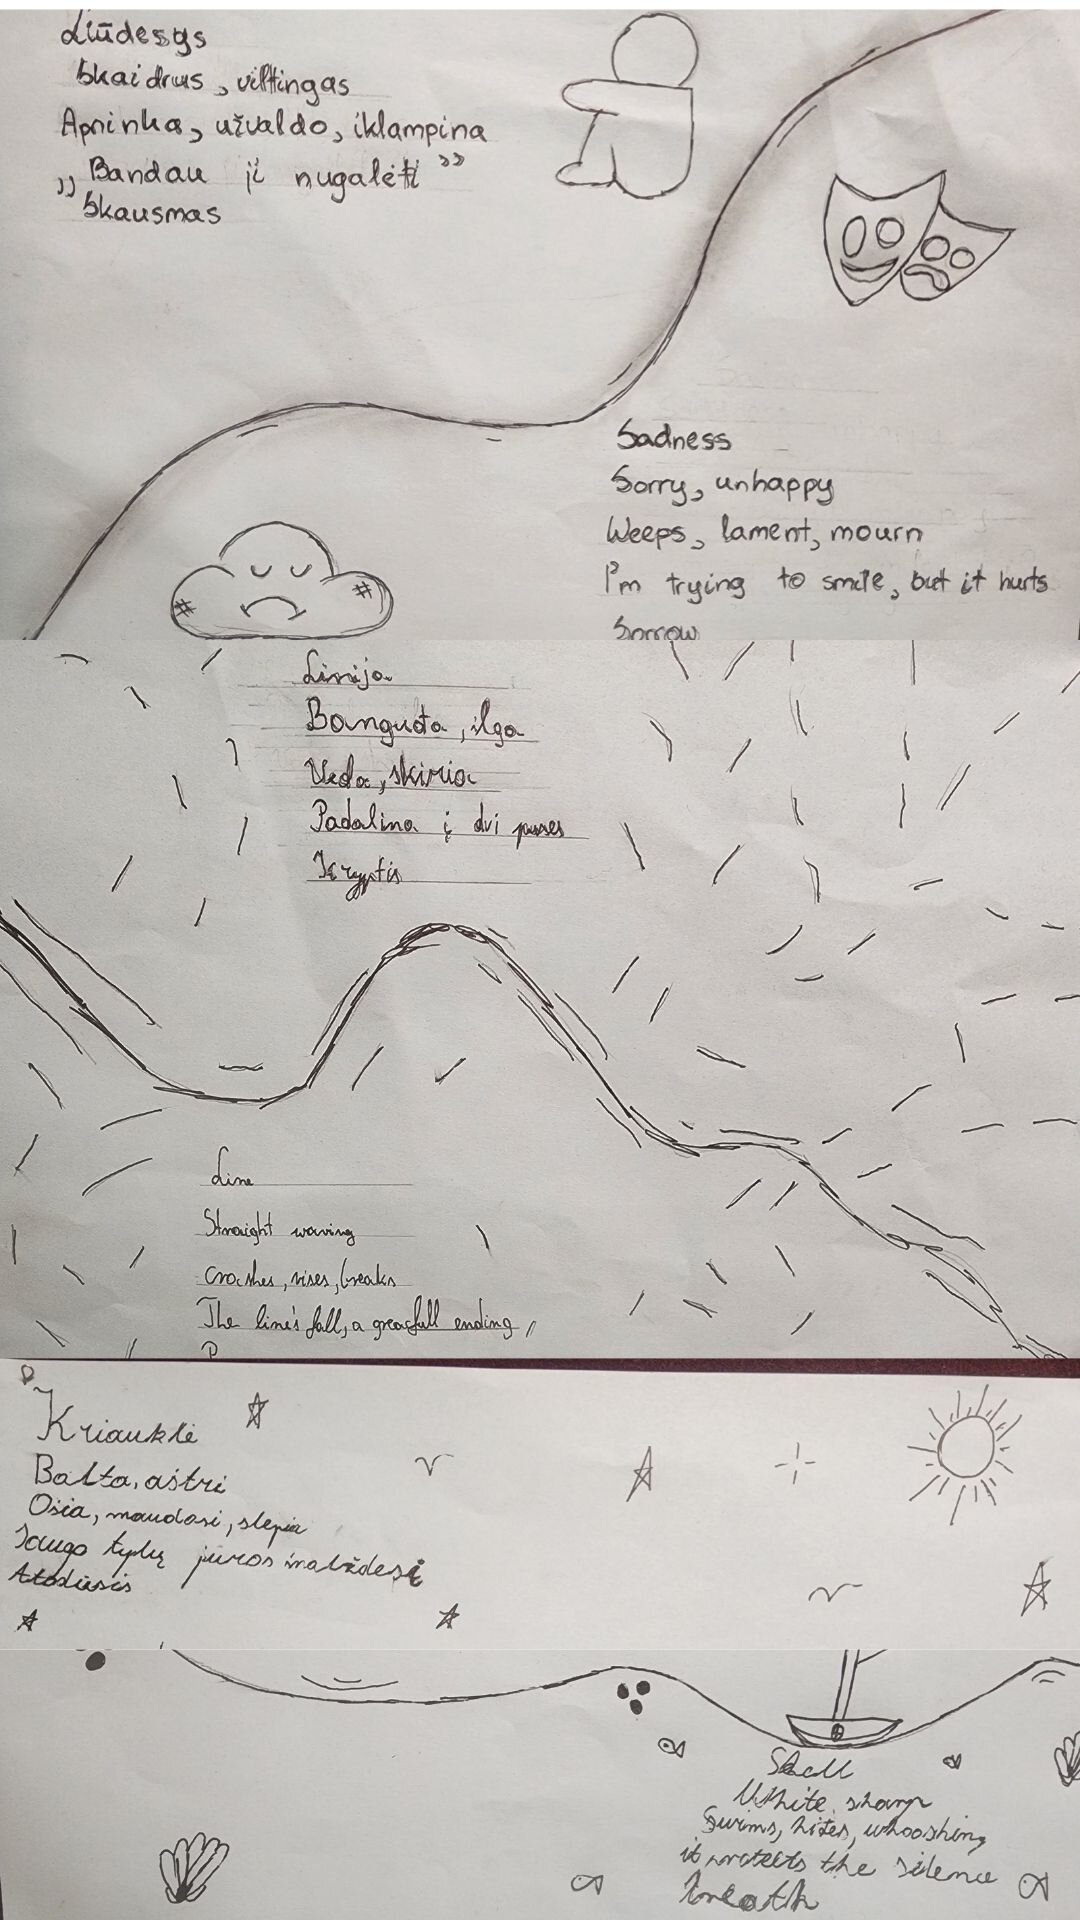 Liūdesys
Skaidrus, viltingas
Apninka, užvaldo, iklampina
„Bandau jį nugalėti”
Skausmas
Sadness
Sorry, unhappy
Weeps, lament, mourn
I'm trying to smile, but it hurts
Sorrow
Linija
Banguota, ilga
Veda, skiria
Padalina į dvi puses
Kryptis
Line
Straight waving
Crashes, rises, breaks
The line's fall, a ending
Kriauklė
Balta, aštri
Ošia, maudosi, slepia
Saugo tylų jūros
Atodūsis
Shell
White, sharp
Swims, hides, whooshing
it protects the silence
breath